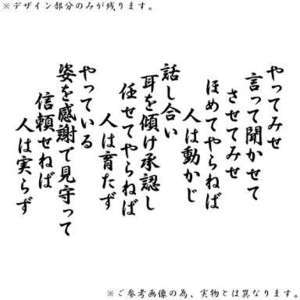 ※デザイン部分のみが残ります。
やってみせ
言って聞かせて
させてみせ
ほめてやらねば
人は動かじ
話し合い
耳を傾け承認し
任せてやらねば
人は育たず
やっている
姿を感謝で見守って
信頼せねば
人は実らず
※ご参考画像の為、実物とは異なります。